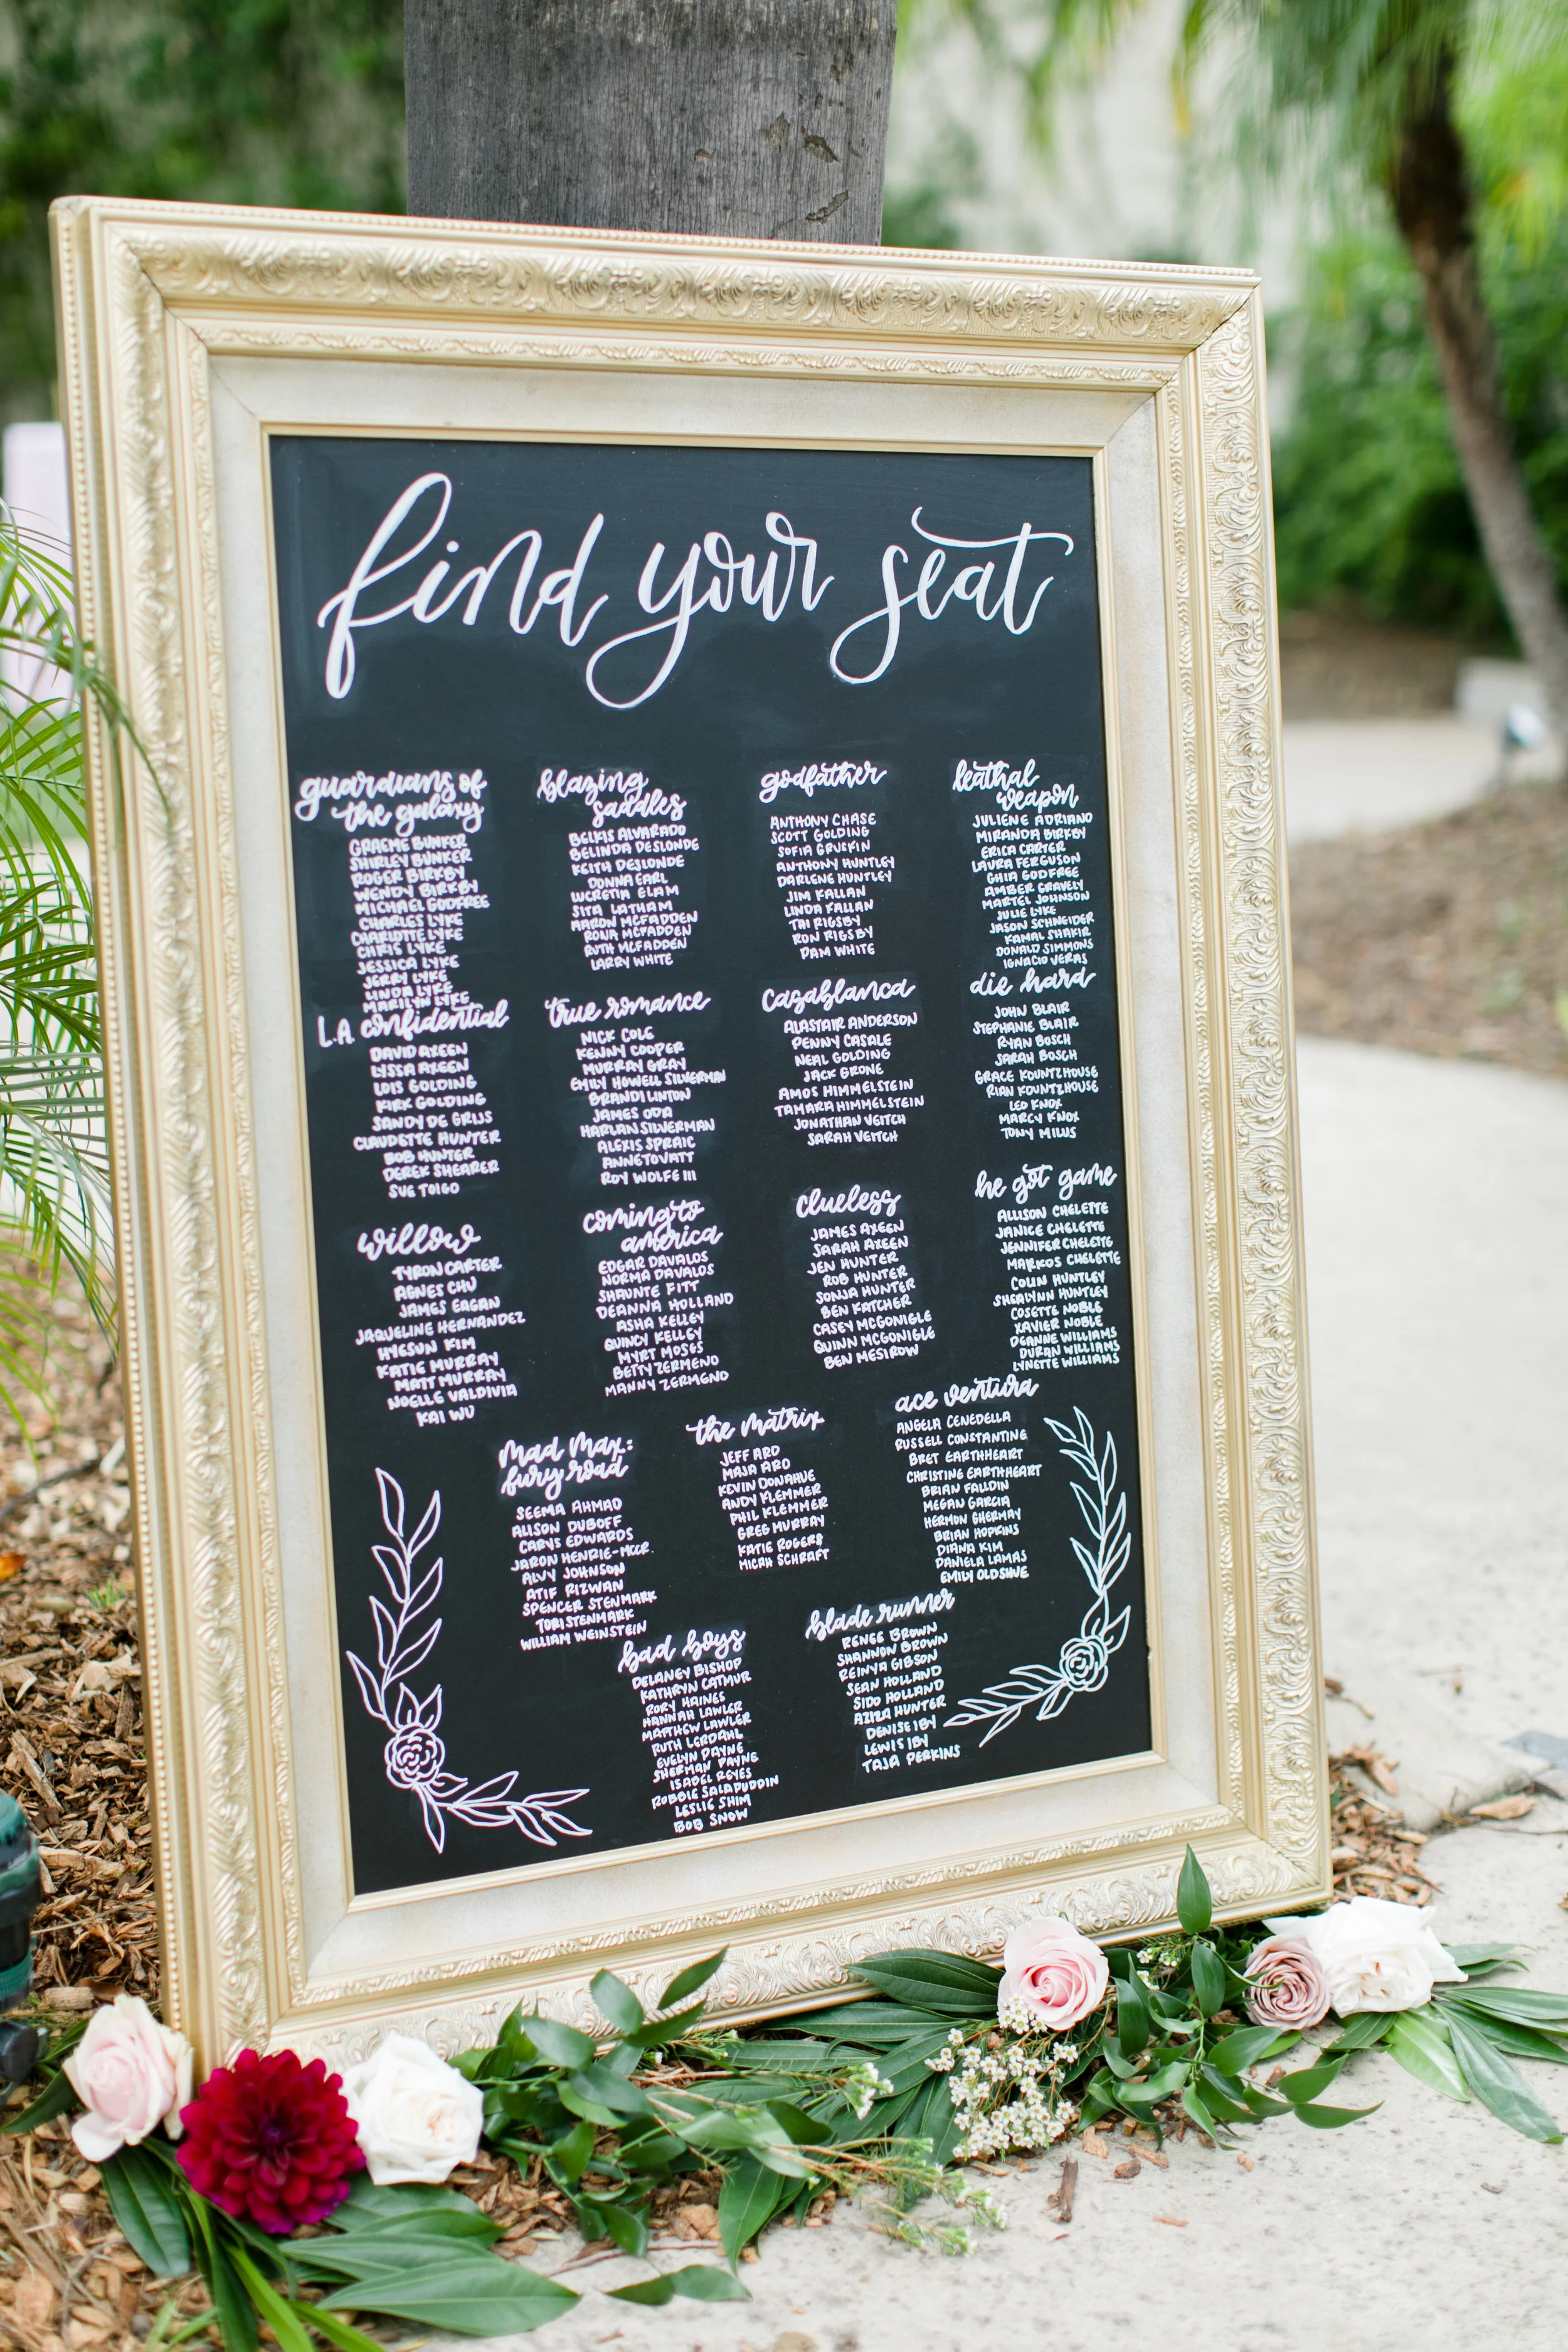 find your seat
guardians of
the galaxy
GRAEME BUNKER
SHIRLEY BUNKER
ROGER BIRKBY
WENDY BIRKBY
MICHAEL GODFREE
CHARLES LYKE
CHARLOTTE LYKE
CHRIS LYKE
JESSICA LYKE
JERRY LYKE
LINDA LYKE
MARILYN LYKE
blazing
saddles
BELKIS ALVARADO
BELINDA DESLONDE
KEITH DESLONDE
DONNA EARL
LUCRETIA ELAM
SITA LATHAM
AARON MCFADDEN
RONA MCFADDEN
RUTH MCFADDEN
LARRY WHITE
godfather
ANTHONY CHASE
SCOTT GOLDING
SOFIA GRUSKIN
ANTHONY HUNTLEY
DARLENE HUNTLEY
JIM KALLAN
LINDA KALLAN
TAI RIGSBY
RON RIGSBY
PAM WHITE
leathal
weapon
JULIENE ADRIANO
MIRANDA BIRKBY
ERICA CARTER
LAURA FERGUSON
GHIA GODFREE
AMBER GRAVELY
MARTEL JOHNSON
JULIE LYKE
JASON SCHNEIDER
KAMAL SHAKIR
DONALD SIMMONS
IGNACIO VERAS
L.A confidential
DAVID AXEEN
LYSSA AXEEN
LOIS GOLDING
KIRK GOLDING
SANDY DE GRIJS
CLAUDETTE HUNTER
BOB HUNTER
DEREK SHEARER
SUE TOIGO
true romance
NICK COLE
KENNY COOPER
MURRAY GRAY
EMILY HOWELL SILVERMAN
BRANDI LINTON
JAMES ODA
HARLAN SILVERMAN
ALEXIS SPRAIC
ANNE TOVATT
ROY WOLFE III
casablanca
ALASTAIR ANDERSON
PENNY CASALE
NEAL GOLDING
JACK GRONE
AMOS HIMMELSTEIN
TAMARA HIMMELSTEIN
JONATHAN VEITCH
SARAH VEITCH
die hard
JOHN BLAIR
STEPHANIE BLAIR
RYAN BOSCH
SARAH BOSCH
GRACE KOUNTZHOUSE
RIAN KOUNTZHOUSE
LEO KNOX
MARCY KNOX
TONY MILUS
willow
TYRON CARTER
AGNES CHU
JAMES EAGAN
JAQUELINE HERNANDEZ
HYESUN KIM
KATIE MURRAY
MATT MURRAY
NOELLE VALDIVIA
KAI WU
coming to
america
EDGAR DAVALOS
NORMA DAVALOS
SHAUNTE FITT
DEANNA HOLLAND
ASHA KELLEY
QUINCY KELLEY
MYRT MOSES
BETTY ZERMENO
MANNY ZERMENO
clueless
JAMES AXEEN
SARAH AXEEN
JEN HUNTER
ROB HUNTER
SONJA HUNTER
BEN KATCHER
CASEY MCGONIGLE
QUINN MCGONIGLE
BEN MESIROW
he got game
ALLISON CHELETTE
JANICE CHELETTE
JENNIFER CHELETTE
MARKOS CHELETTE
COLIN HUNTLEY
SHERLYNN HUNTLEY
COSETTE NOBLE
XAVIER NOBLE
DEANNE WILLIAMS
DURAN WILLIAMS
LYNETTE WILLIAMS
mad max:
fury road
SEEMA AHMAD
ALISON DUBOFF
CARYS EDWARDS
JARON HENRIE-MCCR.
ALVY JOHNSON
ATIF RIZWAN
SPENCER STENMARK
TORI STENMARK
WILLIAM WEINSTEIN
the matrix
JEFF ARD
MAJA ARD
KEVIN DONAHUE
ANDY KLEMMER
PHIL KLEMMER
GREG MURRAY
KATIE ROGERS
MICAH SCHRAFT
ace ventura
ANGELA CENEDELLA
RUSSELL CONSTANTINE
BRET EARTHHEART
CHRISTINE EARTHHEART
BRIAN FALLDIN
MEGAN GARCIA
HERMON GHERMAY
BRIAN HOPKINS
DIANA KIM
DANIELA LAMAS
EMILY OLDSHUE
bad boys
DELANEY BISHOP
KATHRYN CATMUR
RORY HAINES
HANNAH LAWLER
MATTHEW LAWLER
RUTH LERDAHL
EVELYN PAYNE
SHERMAN PAYNE
ISABEL REYES
ROBBIE SALAPUDDIN
LESLIE SHIM
BOB SNOW
blade runner
RENEE BROWN
SHANNON BROWN
REINYA GIBSON
SEAN HOLLAND
SIDO HOLLAND
AZIZA HUNTER
DENISE IBY
LEWIS IBY
TAJA PERKINS